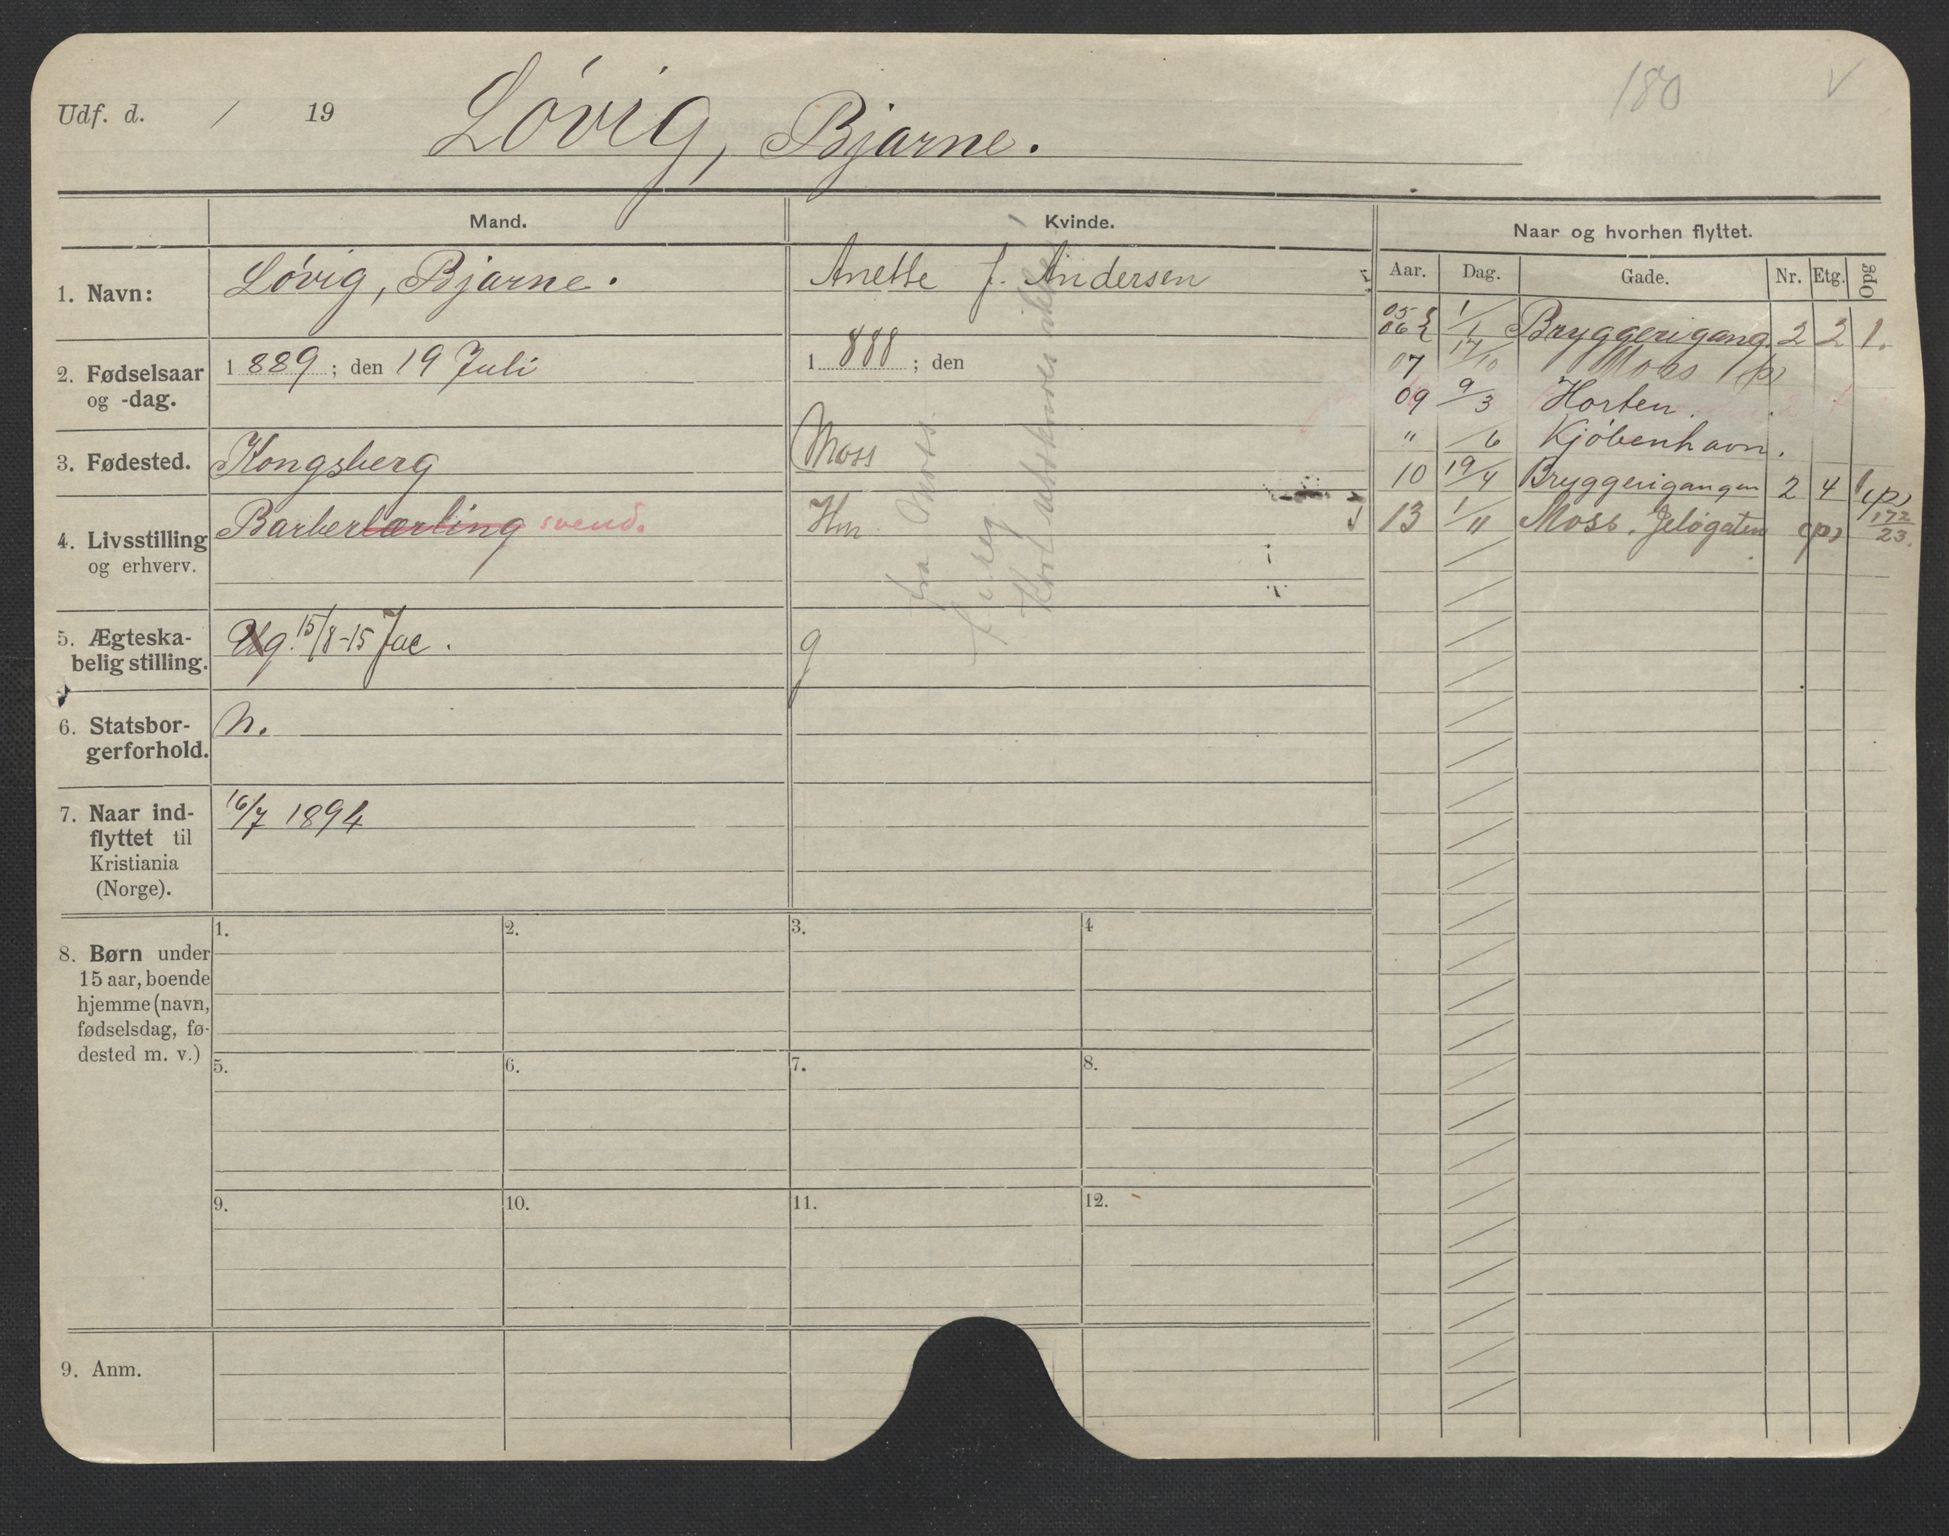 180 V
Udf. d. / 19 Løvig, Bjarne.
Mand. Kvinde. Naar og hvorhen flyttet.
Aar. Dag. Gade. Nr. Etg. Opg
1. Navn: Løvig, Bjarne. Anette J. Andersen
2. Fødselsaar og -dag. 1889; den 19 Juli 1888; den
3. Fødested. Kongsberg Moss
4. Livsstilling og erhverv. Barberlærling svend. Hm
5. Ægteska-
belig stilling. Ug. 15/8-15 g
6. Statsbor-
gerforhold. N.
7. Naar ind-
flyttet til
Kristiania
(Norge). 16/7 1894
05
06 1/1 Bryggerigang. 2 2 1.
07 14/10 Moss (p)
09 9/3 Horten.
" /6 Kjöbenhavn.
10 19/4 Bryggerigangen 2 4 1 (p)
13 1/11 Moss. Jeløgaten (p) 172/23.
fra Moss
8. Børn under
15 aar, boende
hjemme (navn,
fødselsdag, fø-
dested m. v.)
1. 2. 3. 4
5. 6. 7. 8.
9. 10. 11. 12.
9. Anm.